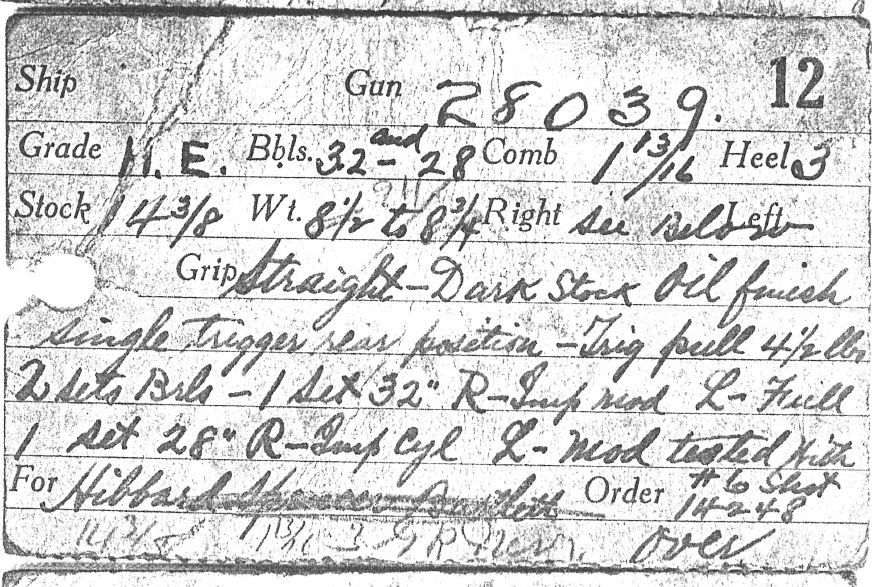 Ship Gun 28039. 12
Grade H.E. Bbls. 32 and - 28 Comb 1 13/16 Heel 3
Stock 14 3/8 Wt. 8 1/2 to 8 3/4 Right See Below Left
Grip Straight - Dark Stock Oil finish
single trigger rear position - Trig pull 4 1/2 lbs
2 sets Brls - 1 Set 32" R - Imp mod L - Full
1 set 28" R - Imp Cyl L - Mod tested with
For Hibbard Spencer Bartlett Order # 6 Shot
14248
14 3/8 1 13/16 3 over